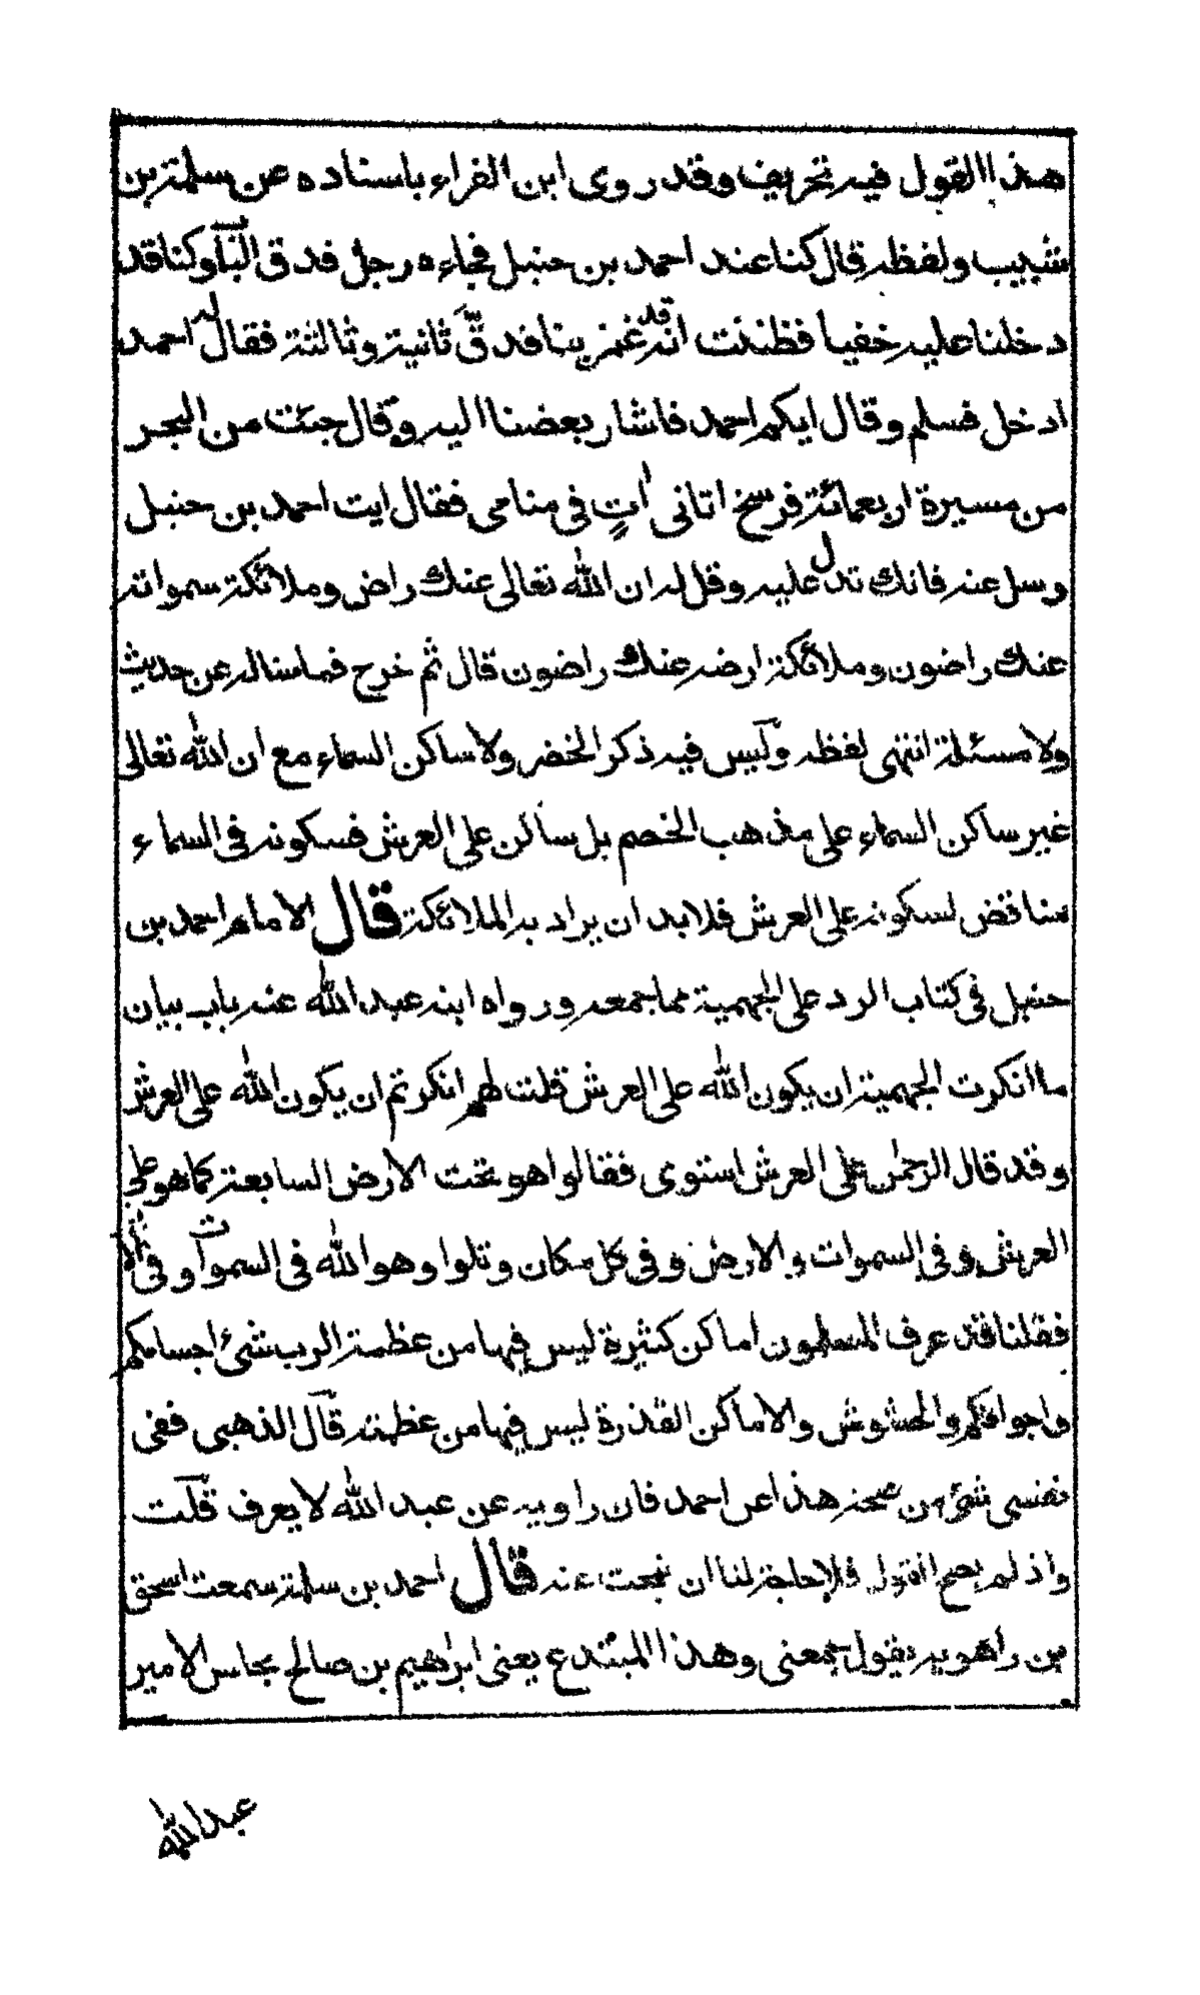 هذا القول فيه تحريف وقد روى ابن الفراء باسناده عن سلمة بن
شبيب ولفظه قال كنا عند احمد بن حنبل فجاءه رجل فدق الباب وكنا قد
دخلنا عليه خفيا فظننت انه قد غمز بنا فدق ثانية وثالثة فقال له احمد
ادخل فسلم وقال ايكم احمد فاشار بعضنا اليه وقال جئت من البحر
من مسيرة اربعمائة فرسخ اتانى اتٍ فى منامى فقال ايت احمد بن حنبل
وسل عنه فانك تدل عليه وقل له ان الله تعالى عنك راض وملائكة سمواته
عنك راضون وملائكة ارضه عنك راضون قال ثم خرج فما ساله عن حديث
ولا مسئلة انتهى لفظه وليس فيه ذكر الخضر ولا ساكن السماء مع ان الله تعالى
غير ساكن السماء على مذهب الخصم بل ساكن على العرش فسكونه فى السماء
مناقض لسكونه على العرش فلا بد ان يراد به الملائكة قال الامام احمد بن
حنبل فى كتاب الرد على الجهمية مما جمعه ورواه ابنه عبد الله عنه باب بيان
ما انكرت الجهمية ان يكون الله على العرش قلت لهم انكرتم ان يكون الله على العرش
وقد قال الرحمن على العرش استوى فقالوا هو تحت الارض السابعة كما هو على
العرش وفى السموات والارض وفى كل مكان وتلوا وهو الله فى السموات وفى الارض
فقلنا قد عرف المسلمون اماكن كثيرة ليس فيها من عظمة الرب شئ اجسامكم
واجوافكم والحشوش والاماكن القذرة ليس فيها من عظمته قال الذهبى ففى
نفسى شئ من صحة هذا عن احمد فان راويه عن عبد الله لا يعرف قلت
واذ لم يصح القول فلا حاجة لنا ان نبحث عنه قال احمد بن سلمة سمعت اسحق
بن راهويه يقول جمعنى وهذا المبتدع يعنى ابرهيم بن صالح مجلس الامير
عبد الله